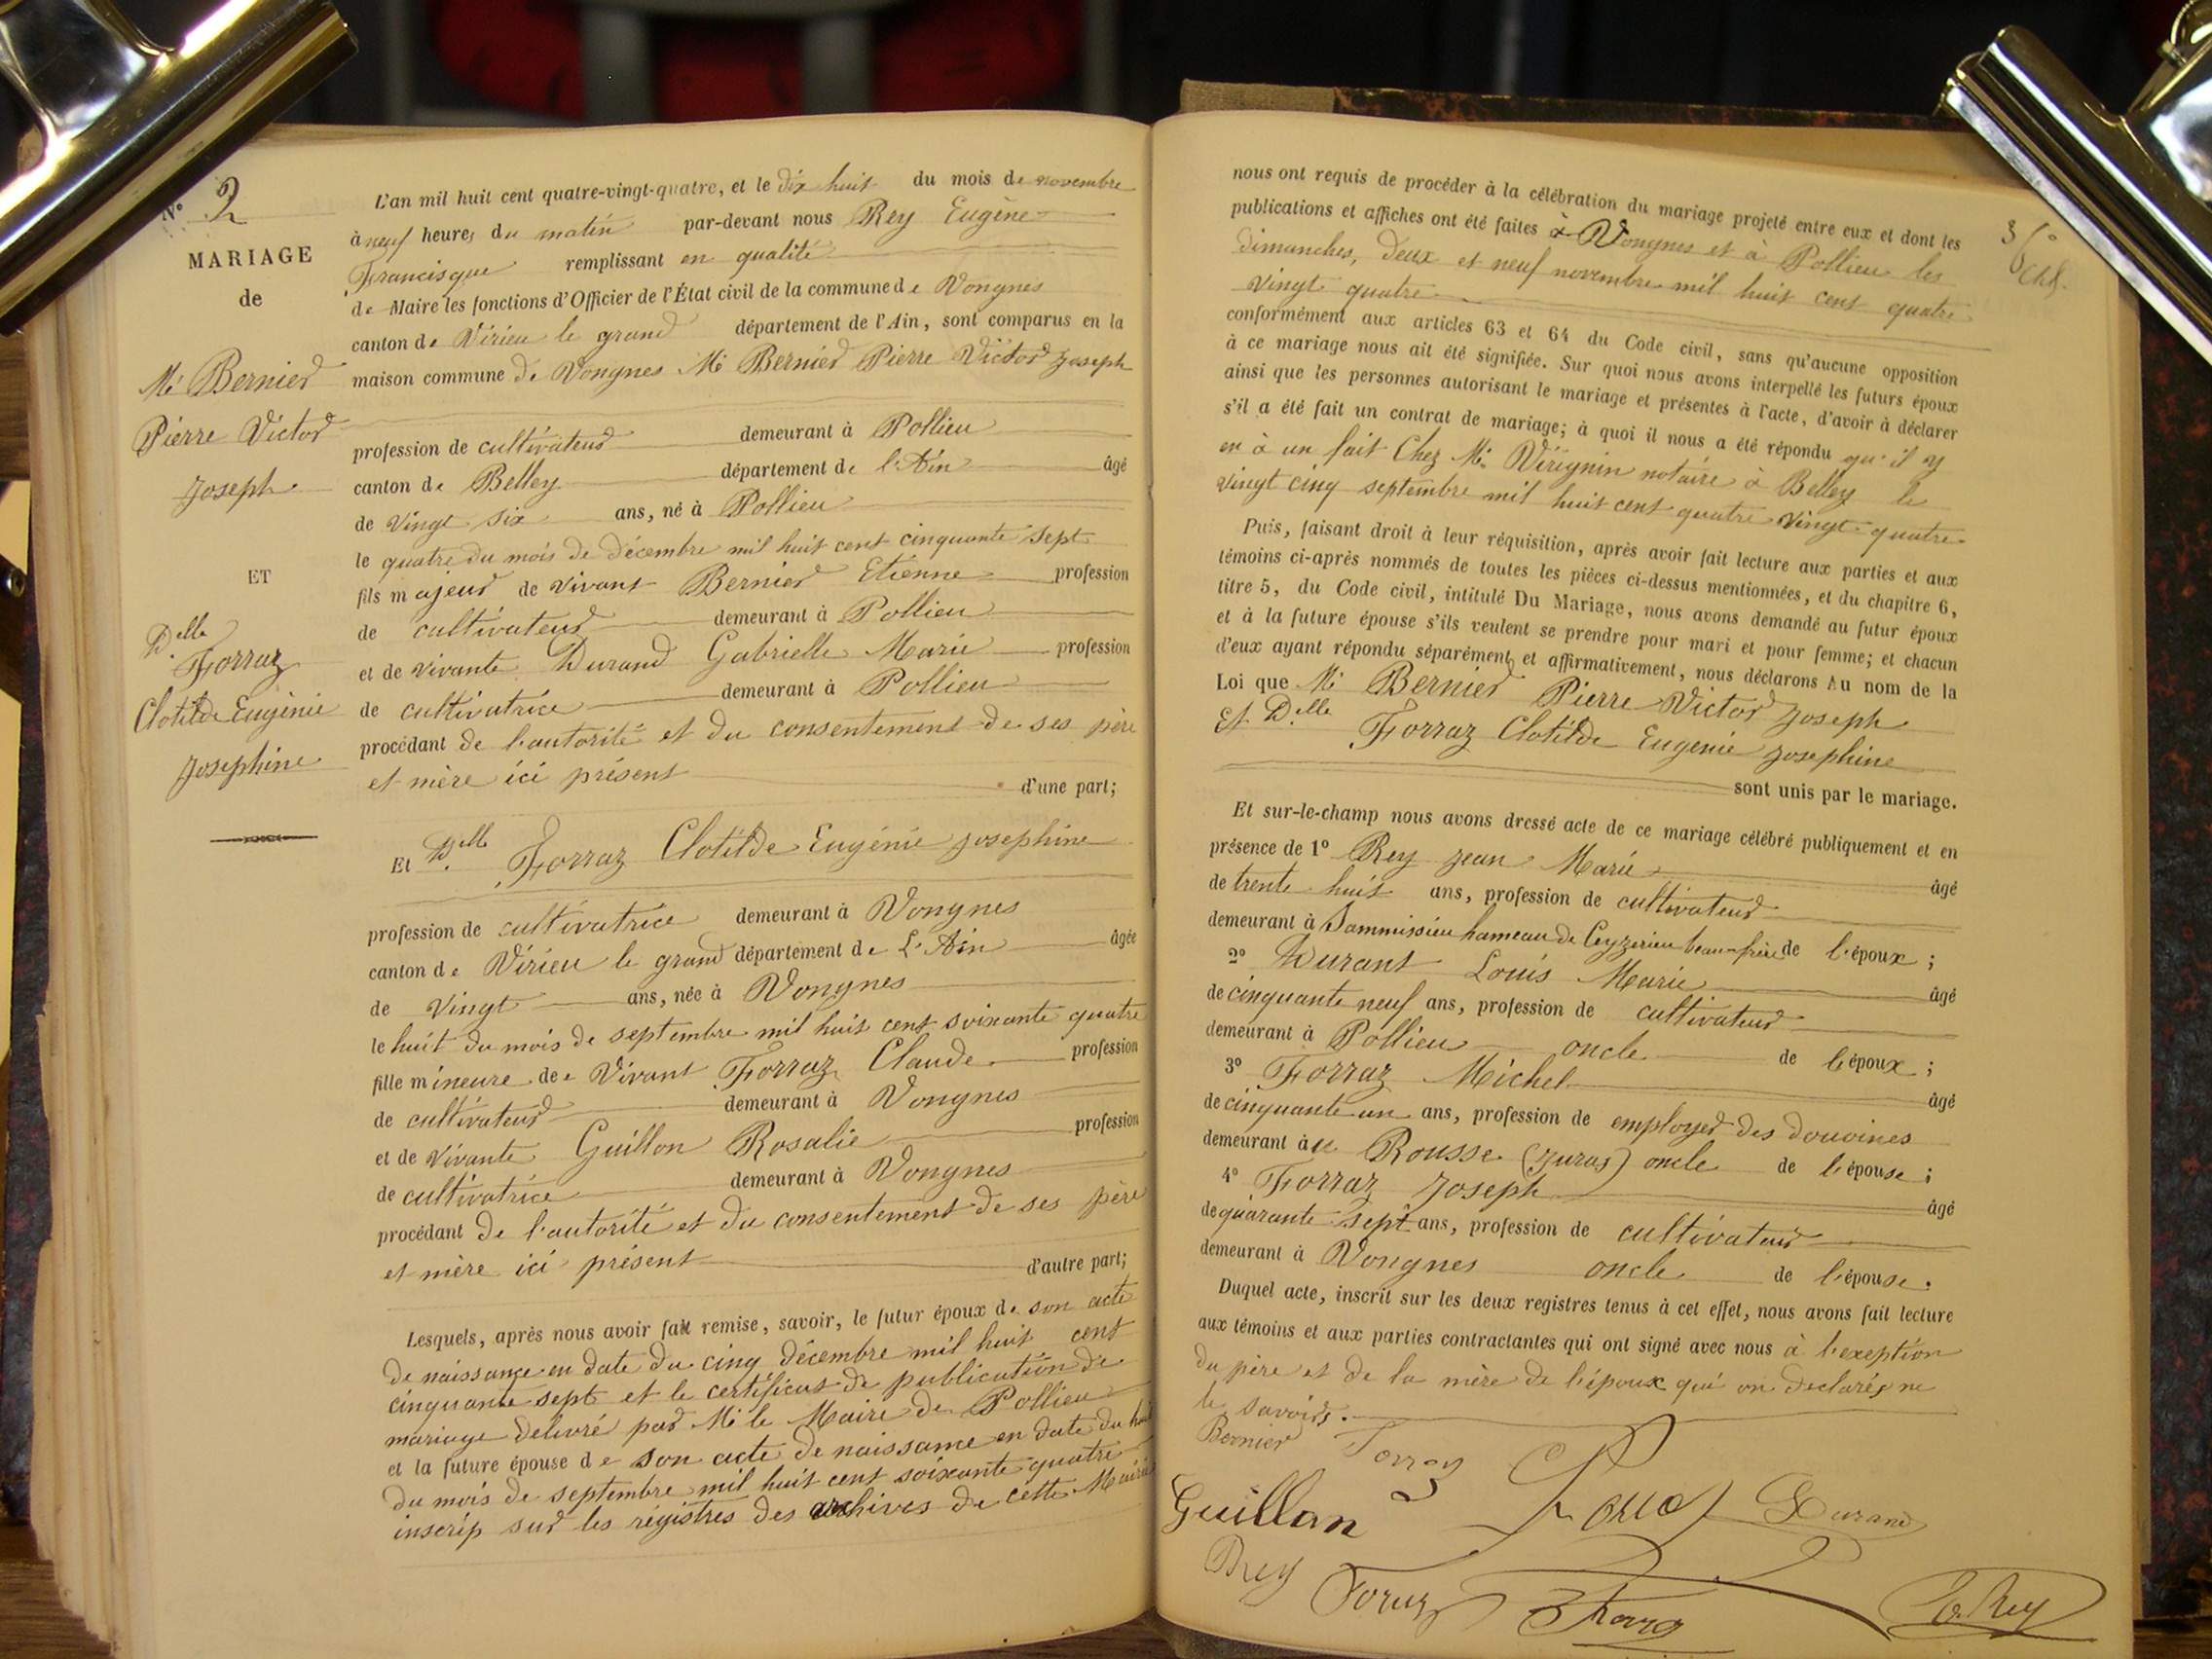 N° 2
MARIAGE
de
Mr Bernier
Pierre Victor
Joseph
ET
Delle
Forraz
Clotilde Eugénie
Josephine
L'an mil huit cent quatre-vingt-quatre, et le dix huit du mois de novembre
à neuf heures du matin par-devant nous Rey Eugène
Francisque remplissant en qualité
de Maire les fonctions d'Officier de l'État civil de la commune de Vongnes
canton de Virieu le grand département de l'Ain, sont comparus en la
maison commune de Vongnes Mr Bernier Pierre Victor Joseph
profession de cultivateur demeurant à Pollieu
canton de Belley département de l'Ain âgé
de vingt six ans, né à Pollieu
le quatre du mois de décembre mil huit cent cinquante sept
fils majeur de vivant Bernier Etienne profession
de cultivateur demeurant à Pollieu
et de vivante Durand Gabrielle Marie profession
de cultivatrice demeurant à Pollieu
procédant de l'autorité et du consentement de ses père
et mère ici présent d'une part;
Et Delle Forraz Clotilde Eugénie Josephine
profession de cultivatrice demeurant à Vongnes
canton de Virieu le grand département de L'Ain âgée
de vingt ans, née à Vongnes
le huit du mois de septembre mil huit cent soixante quatre
fille mineure de Vivant Forraz Claude profession
de cultivateur demeurant à Vongnes
et de vivante Guillon Rosalie profession
de cultivatrice demeurant à Vongnes
procédant de l'autorité et du consentement de ses père
et mère ici présent d'autre part;
Lesquels, après nous avoir fait remise, savoir, le futur époux de son acte
de naissance en date du cinq décembre mil huit cent
cinquante sept et le certificat de publication de
mariage delivré par Mr le Maire de Pollieu
et la future épouse de son acte de naissance en date du
du mois de septembre mil huit cent soixante quatre
inscrip sur les régistres des archives de cette Mairie
nous ont requis de procéder à la célébration du mariage projeté entre eux et dont les
publications et affiches ont été faites à Vongnes et à Pollieu les
dimanches, deux et neuf novembre mil huit cent quatre
vingt quatre
conformément aux articles 63 et 64 du Code civil, sans qu'aucune opposition
à ce mariage nous ait été signifiée. Sur quoi nous avons interpellé les futurs époux
ainsi que les personnes autorisant le mariage et présentes à l'acte, d'avoir à déclarer
s'il a été fait un contrat de mariage; à quoi il nous a été répondu qu'il y
en à un fait Chez Mr Virignin notaire à Belley le
vingt cinq septembre mil huit cent quatre vingt quatre
Puis, faisant droit à leur réquisition, après avoir fait lecture aux parties et aux
témoins ci-après nommés de toutes les pièces ci-dessus mentionnées, et du chapitre 6,
titre 5, du Code civil, intitulé Du Mariage, nous avons demandé au futur époux
et à la future épouse s'ils veulent se prendre pour mari et pour femme; et chacun
d'eux ayant répondu séparément et affirmativement, nous déclarons Au nom de la
Loi que Mr Bernier Pierre Victor Joseph
Et Delle Forraz Clotilde Eugénie Josephine
sont unis par le mariage.
Et sur-le-champ nous avons dressé acte de ce mariage célébré publiquement et en
présence de 1° Rey Jean Marie âgé
de trente huit ans, profession de cultivateur
demeurant à Sammissieu hameau de Ceyzerieu beau-frère de l'époux;
2° Durant Louis Marie âgé
de cinquante neuf ans, profession de cultivateur
demeurant à Pollieu oncle de l'époux;
3° Forraz Michel âgé
de cinquante un ans, profession de employer des douoines
demeurant aux Rousse (Juras) oncle de l'épouse;
4° Forraz Joseph âgé
de quarante sept ans, profession de cultivateur
demeurant à Vongnes oncle de l'épouse.
Duquel acte, inscrit sur les deux registres tenus à cet effet, nous avons fait lecture
aux témoins et aux parties contractantes qui ont signé avec nous à l'exeption
du père et de la mère de l'époux qui on declarés ne
le savoirs.
Bernier Forraz Durand
Guillon
Rey Foraz E. Rey